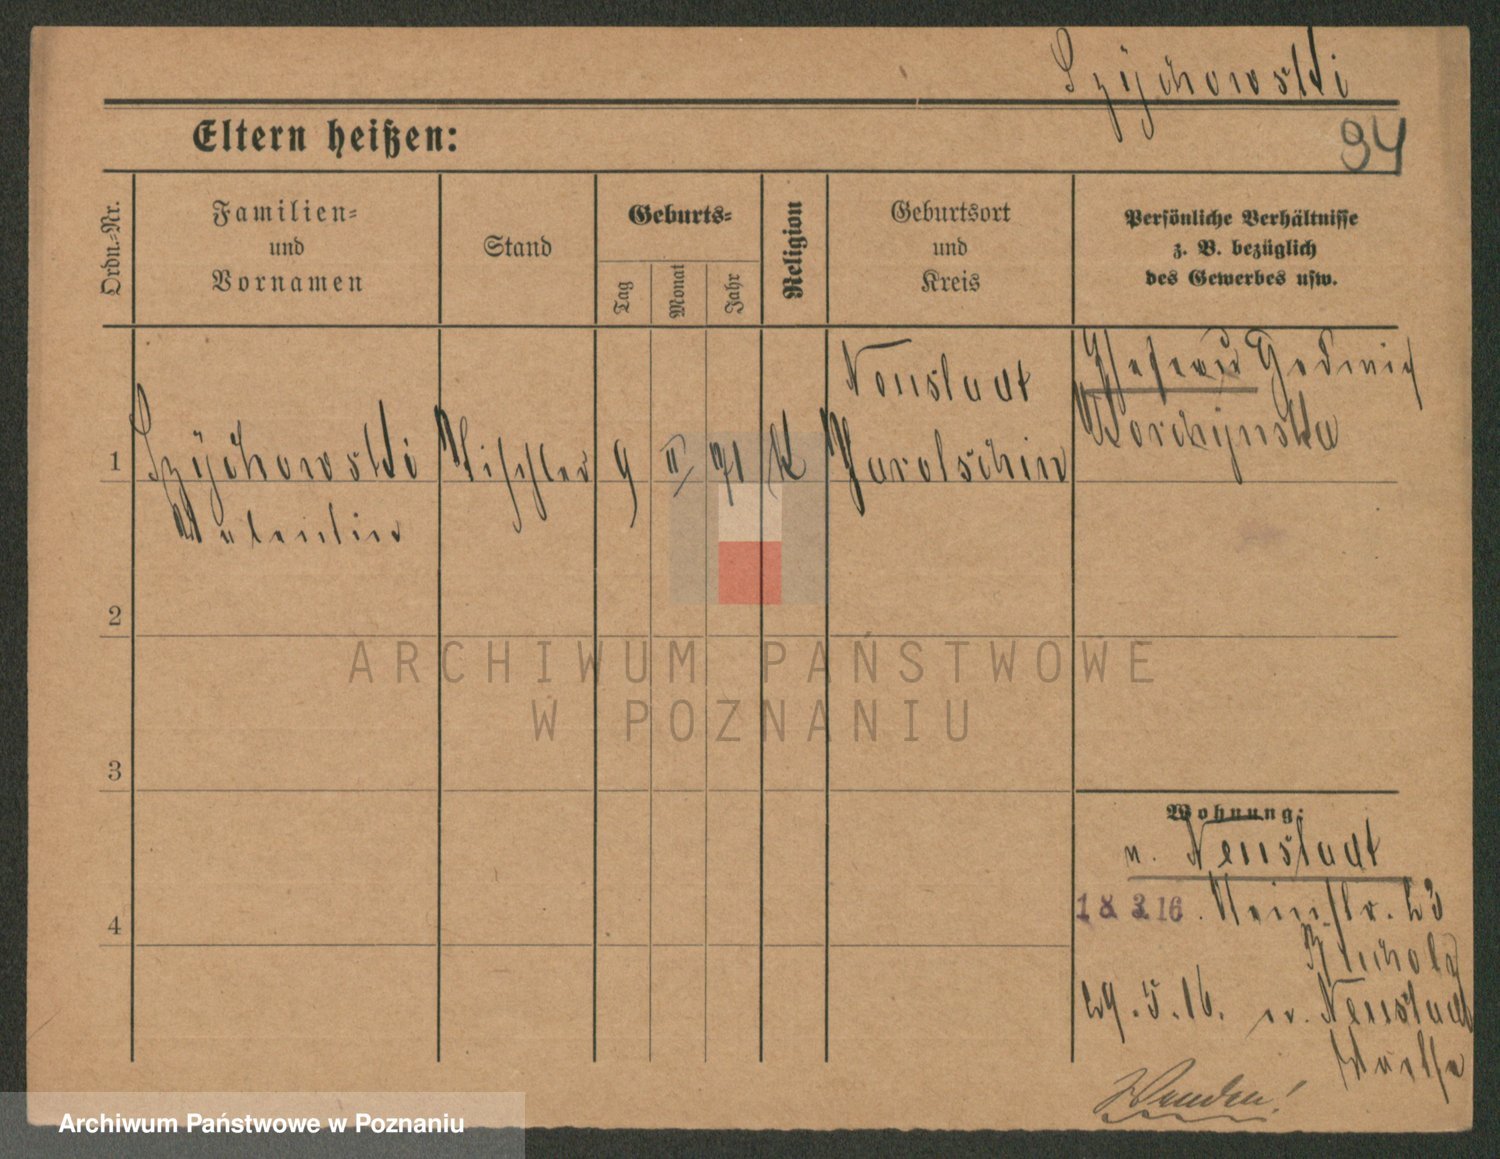 Szÿchowski
94
Eltern heißen:
Ordn.-Nr.
Familien-
und
Vornamen
Stand
Geburts-
Tag
Monat
Jahr
Religion
Geburtsort
und
Kreis
Persönliche Verhältnisse
z. B. bezüglich
des Gewerbes usw.
Neustadt
Ehefrau Hedwig
1
Szÿchowski
Tischler
9
II
71
K
Jarotschin
Worchynska
Valentin
2
ARCHIWUM PAŃSTWOWE
W POZNANIU
3
Wohnung:
n. Neustadt
18 3 16.
23
4
29.5.16. Neustadt
Warthe
Wenden!
Archiwum Państwowe w Poznaniu